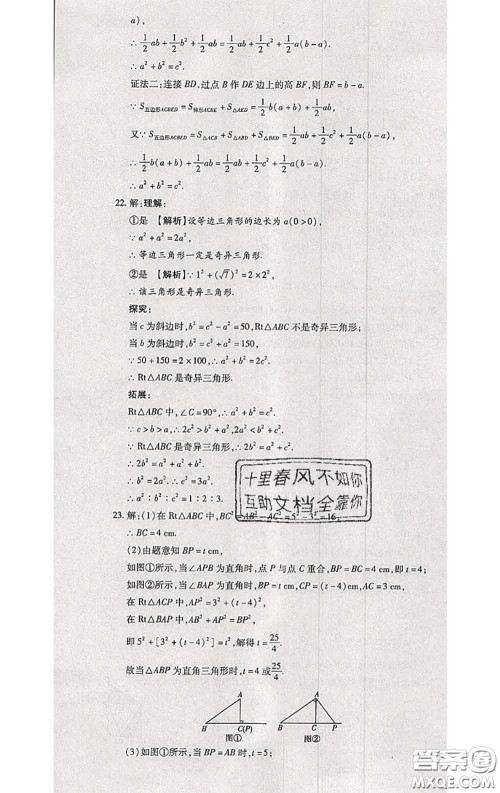 a),
∴ 1/2 ab + 1/2 b² + 1/2 ab = 1/2 ab + 1/2 c² + 1/2 a(b-a).
∴ a² + b² = c².
证法二:连接 BD,过点 B 作 DE 边上的高 BF,则 BF = b-a.
∵ S五边形ACBED = S梯形ACBE + S△AED = 1/2 b(a+b) + 1/2 ab,
又∵ S五边形ACBED = S△ACB + S△ABD + S△BDE = 1/2 ab + 1/2 c² + 1/2 a(b-a),
∴ 1/2 b(a+b) + 1/2 ab = 1/2 ab + 1/2 c² + 1/2 a(b-a).
∴ a² + b² = c².
22. 解:理解:
①是 【解析】设等边三角形的边长为 a(0>0),
∵ a² + a² = 2a²,
∴ 等边三角形一定是奇异三角形.
②是 【解析】∵ 1² + (√7)² = 2×2²,
∴ 该三角形是奇异三角形.
探究:
当 c 为斜边时, b² = c² - a² = 50, Rt△ABC 不是奇异三角形;
当 b 为斜边时, b² = c² + a² = 150,
∵ 50+150 = 2×100, ∴ a² + b² = 2c².
∴ Rt△ABC 是奇异三角形.
拓展:
Rt△ABC 中, ∠C = 90°, ∴ a² + b² = c².
∵ c>b>a, ∴ 2c² > b² + a², 2a² < b² + c².
∵ Rt△ABC 是奇异三角形, ∴ 2b² = a² + c².
∴ 2b² = a² + a² + b². ∴ b² = 2a².
∵ a² + b² = c², ∴ c² = 3a².
∴ a² : b² : c² = 1 : 2 : 3.
十里春风不如你
互助文档全靠你
23. 解:(1)在 Rt△ABC 中, BC² = AB² - AC² = 5² - 3² = 16,
∴ BC = 4 cm.
(2)由题意知 BP = t cm,
如图①所示,当∠APB 为直角时,点 P 与点 C 重合, BP = BC = 4 cm,即 t = 4;
如图②所示,当∠BAP 为直角时, BP = t cm, CP = (t-4)cm, AC = 3 cm,
在 Rt△ACP 中, AP² = 3² + (t-4)²,
在 Rt△BAP 中, AB² + AP² = BP²,
即 5² + [3² + (t-4)²] = t²,解得 t = 25/4.
故当△ABP 为直角三角形时, t = 4 或 25/4.
A
B C(P)
图①
A
B C P
图②
(3)如图①所示,当 BP = AB 时, t = 5;
答案圈
MXQE.COM